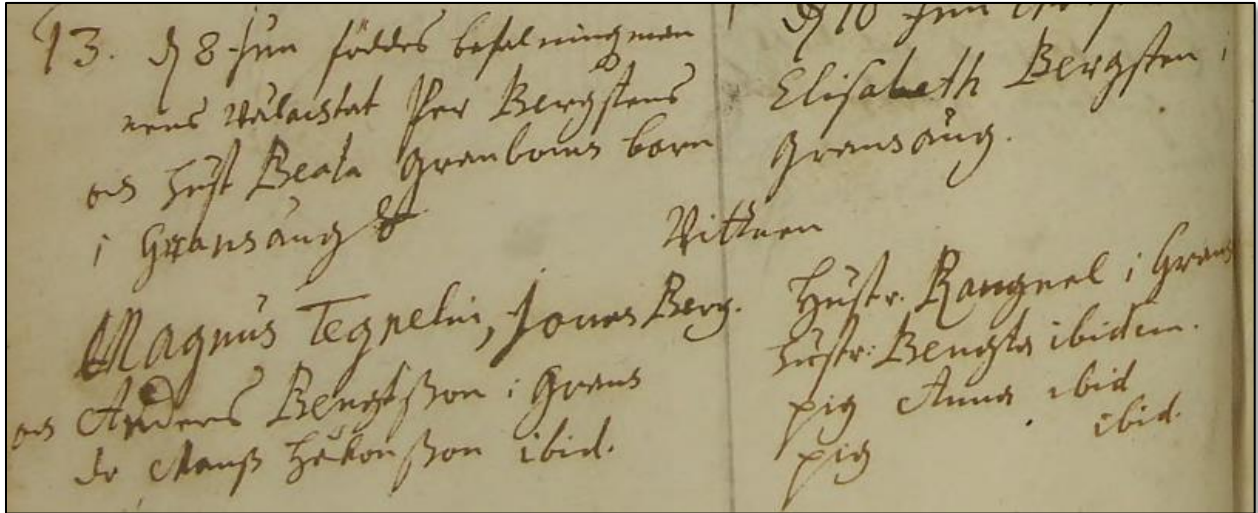 13. d 8 Jun föddes befalningsman
nens Wälachtat Per Bergstens
och Hust Beata Granboms barn
i Gransäng
d 10 Jun
Elisabeth Bergsten i
Gransäng.
Vittnen
Magnus Tegnelin, Jonas Berg.
och Anders Bengtßon i Grans
dr Månß Håkonßon ibid.
Hustr. Rangnel i Grans
Hustr: Bengta ibidem.
pig Anna ibid
pig ibid.